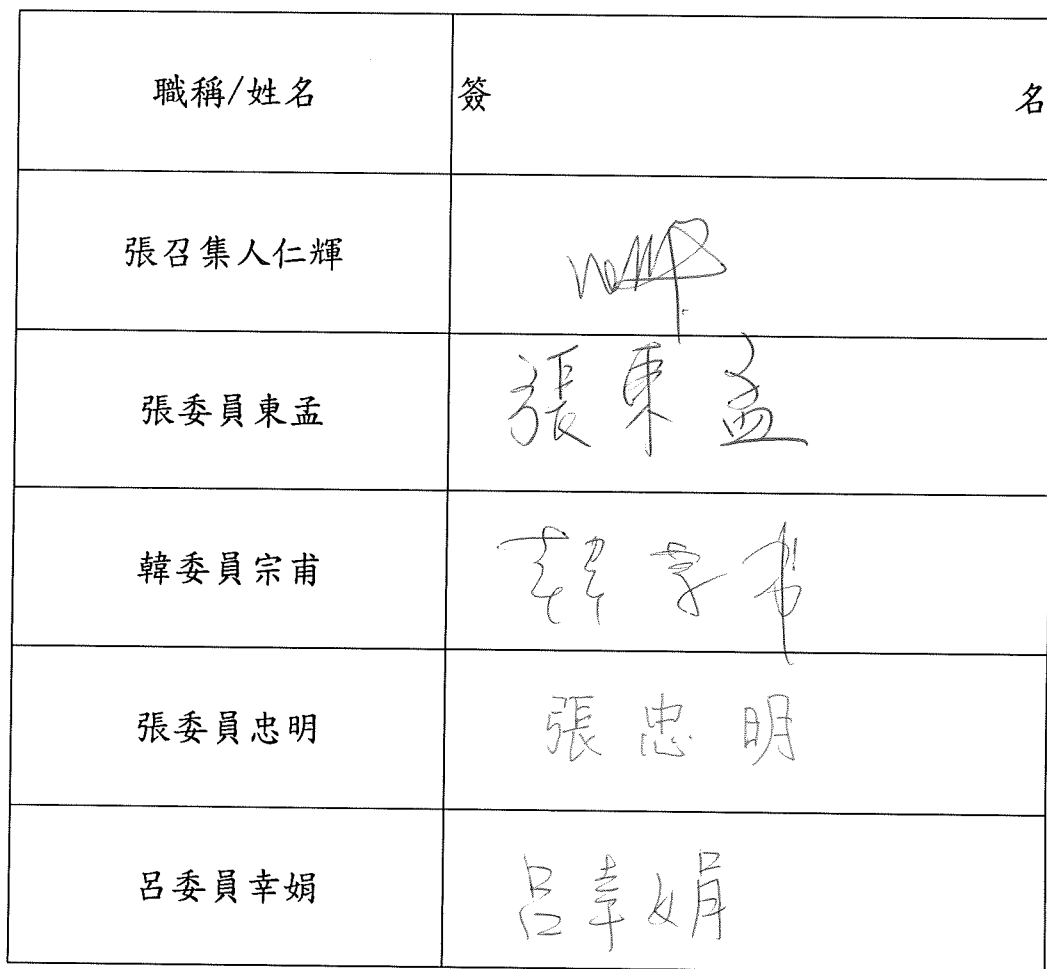 職稱/姓名 簽 名
張召集人仁輝
張委員東孟 張東孟
韓委員宗甫 韓宗甫
張委員忠明 張忠明
呂委員幸娟 呂幸娟